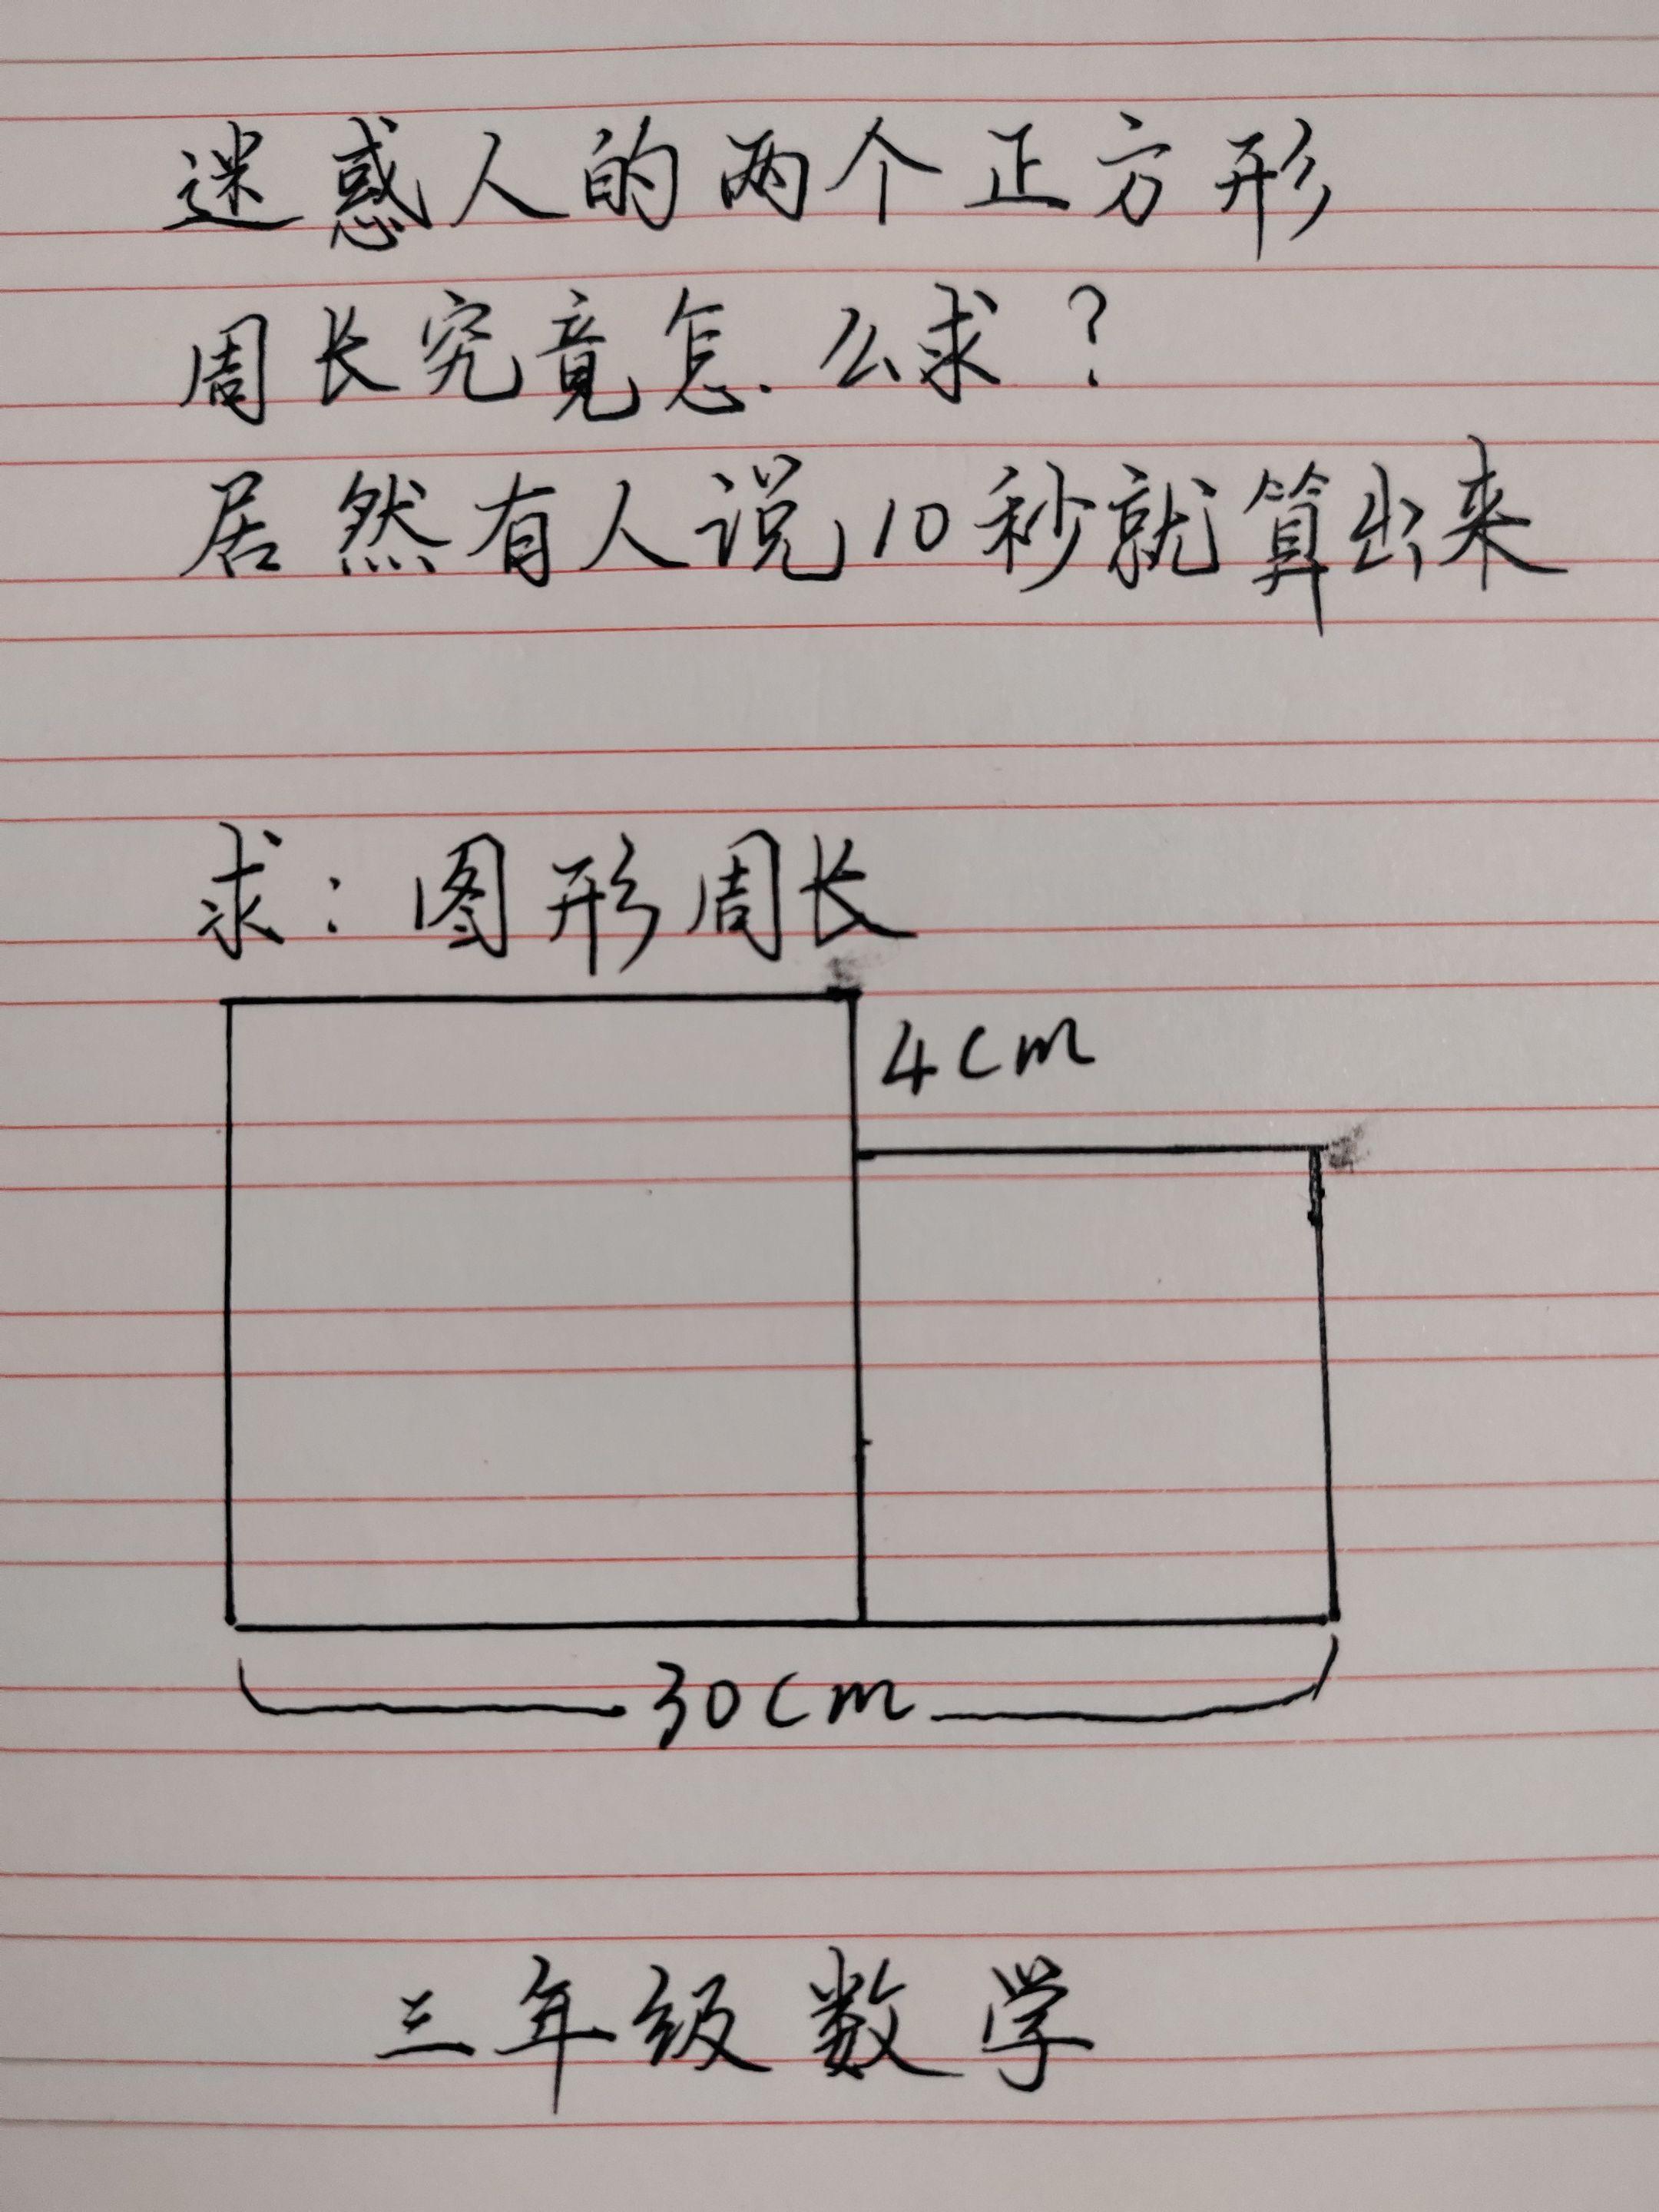 迷惑人的两个正方形
周长究竟怎么求?
居然有人说10秒就算出来
求:图形周长
4cm
30cm
三年级数学